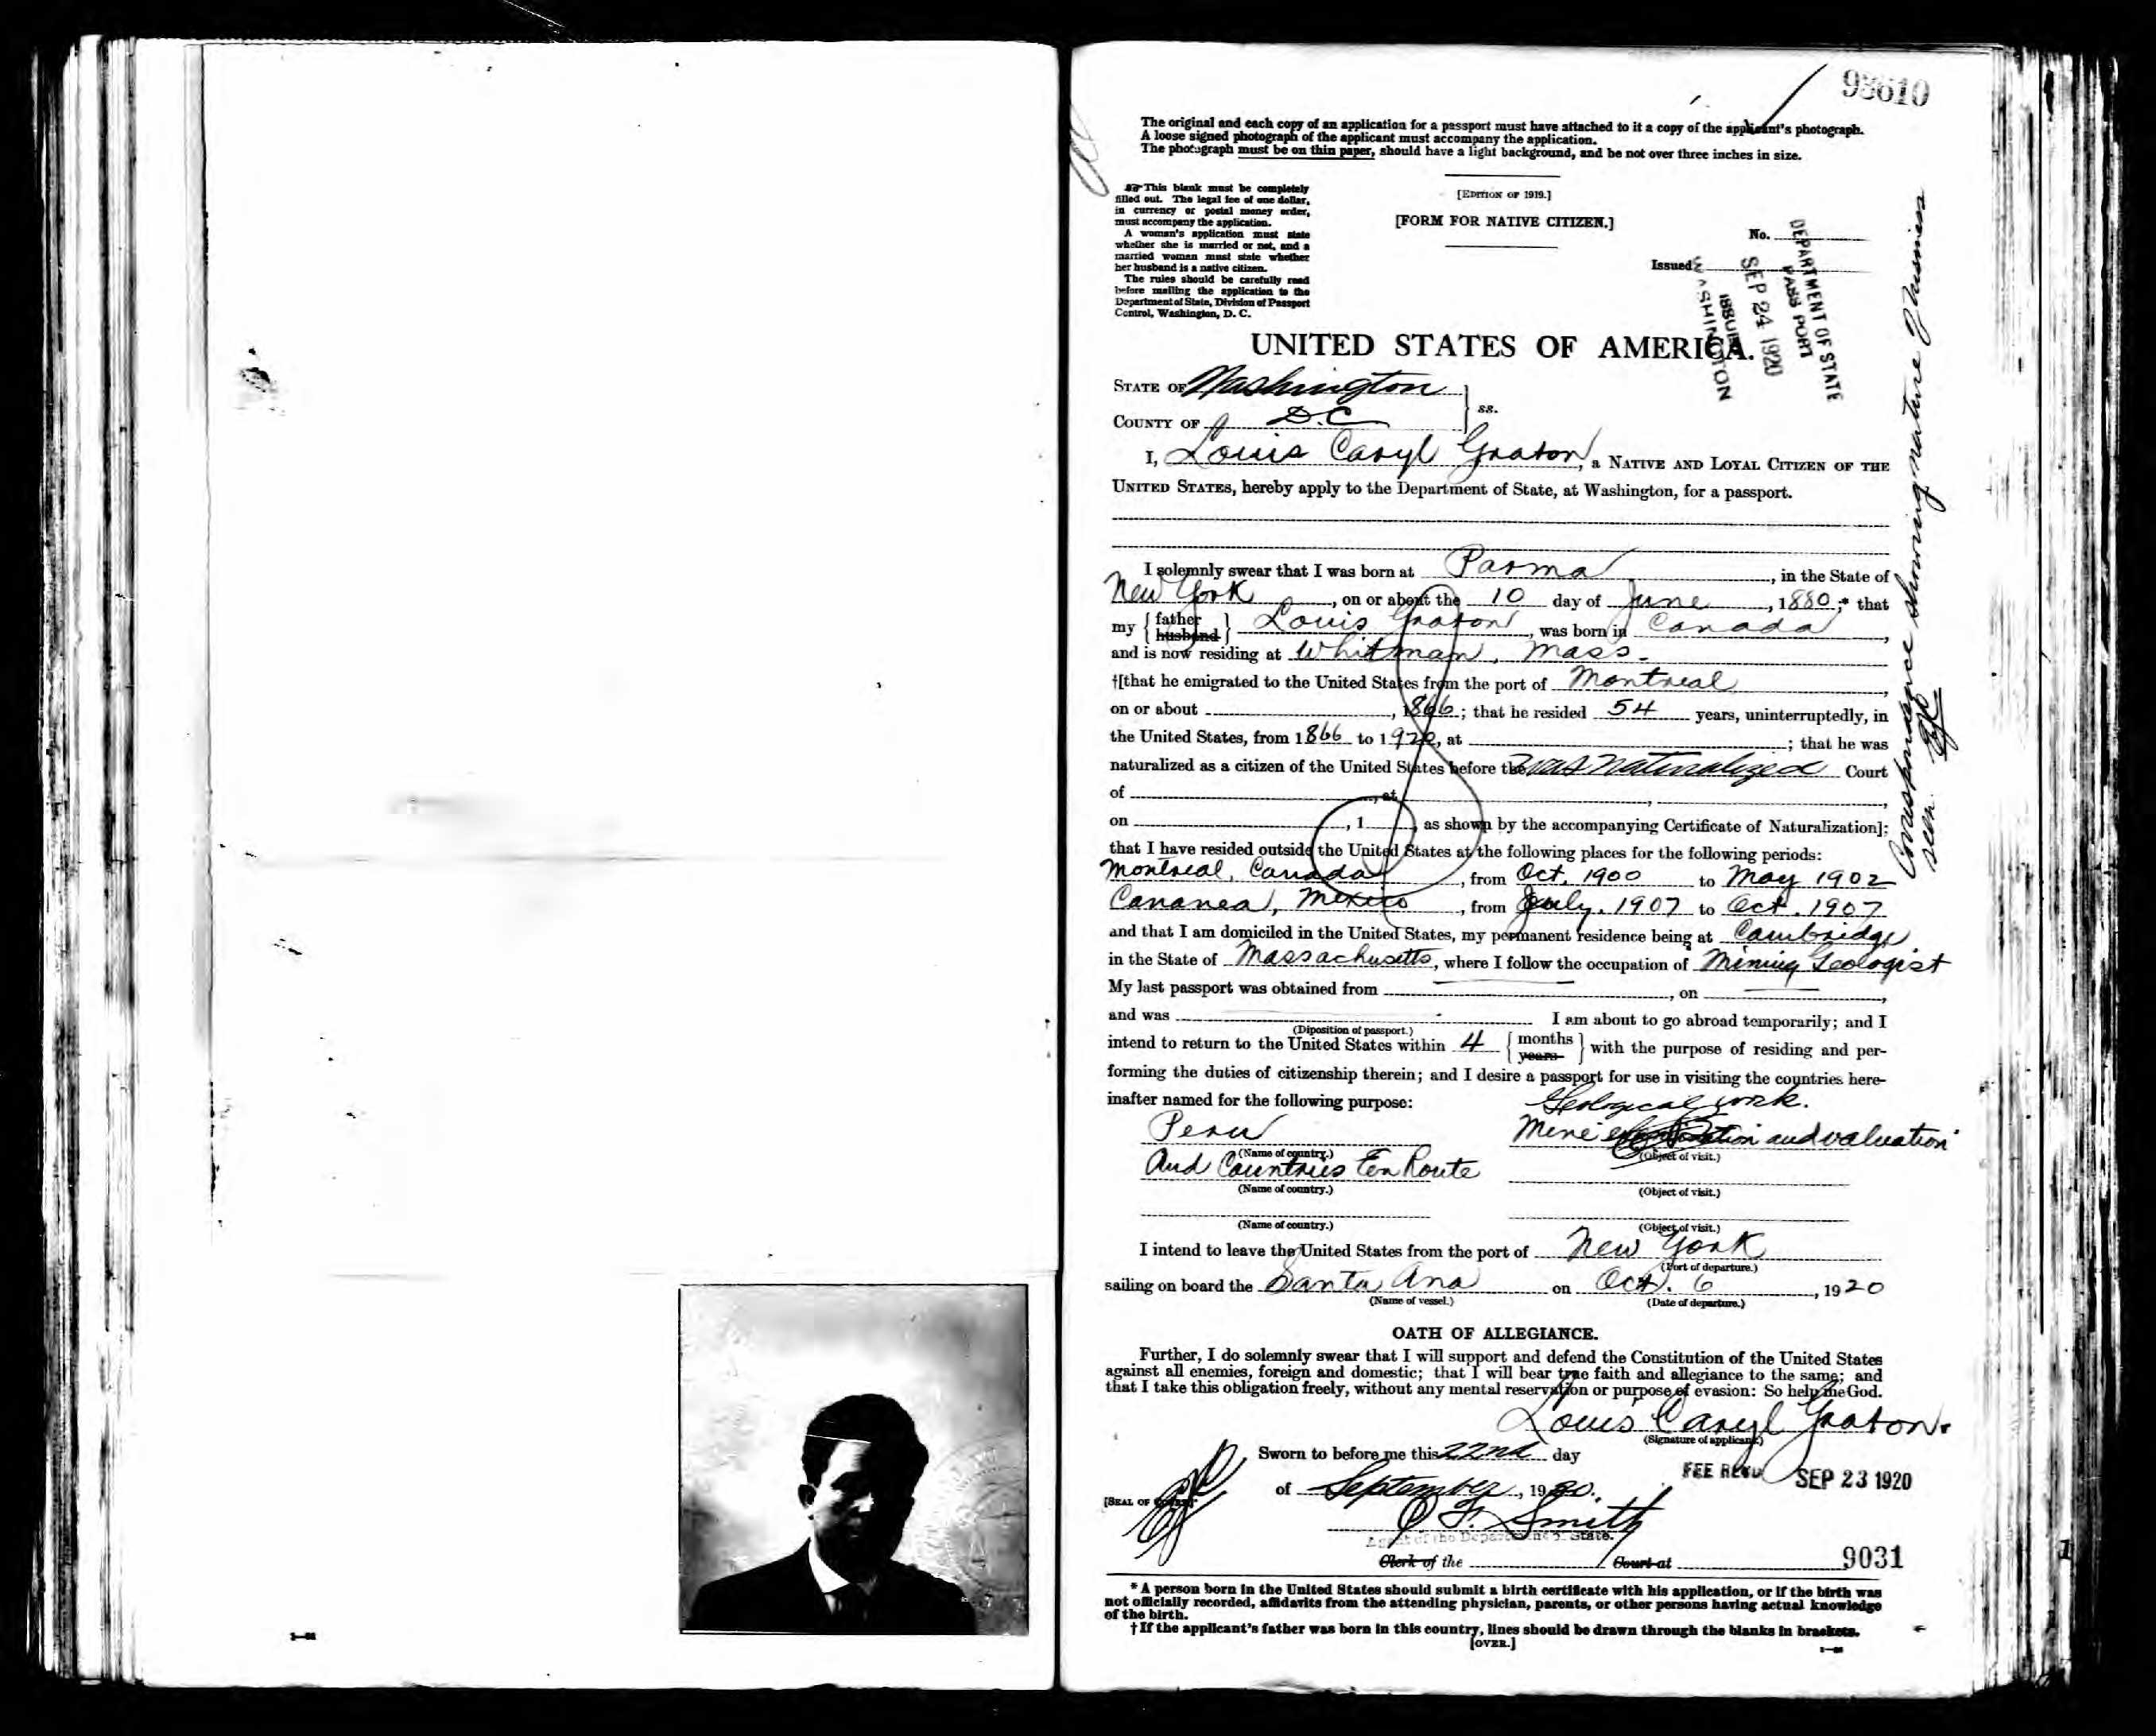 93610
The original and each copy of an application for a passport must have attached to it a copy of the applicant's photograph.
A loose signed photograph of the applicant must accompany the application.
The photograph must be on thin paper, should have a light background, and be not over three inches in size.
This blank must be completely
filled out. The legal fee of one dollar,
in currency or postal money order,
must accompany the application.
A woman's application must state
whether she is married or not, and a
married woman must state whether
her husband is a native citizen.
The rules should be carefully read
before mailing the application to the
Department of State, Division of Passport
Control, Washington, D. C.
[EDITION OF 1919.]
[FORM FOR NATIVE CITIZEN.]
No.
Issued
DEPARTMENT OF STATE
PASSPORT
SEP 24 1920
ISSUED
WASHINGTON
UNITED STATES OF AMERICA.
STATE OF Washington
COUNTY OF D.C
ss.
I, Louis Caryl Graton, a NATIVE AND LOYAL CITIZEN OF THE
UNITED STATES, hereby apply to the Department of State, at Washington, for a passport.
I solemnly swear that I was born at Parma, in the State of
New York, on or about the 10 day of June, 1880;* that
my { father husband } Louis Graton, was born in Canada,
and is now residing at Whitman, Mass.
†[that he emigrated to the United States from the port of Montreal,
on or about , 1866; that he resided 54 years, uninterruptedly, in
the United States, from 1866 to 1920, at ; that he was
naturalized as a citizen of the United States before the was naturalized Court
of , at , ,
on , 1 , as shown by the accompanying Certificate of Naturalization];
that I have resided outside the United States at the following places for the following periods:
Montreal, Canada, from Oct. 1900 to May 1902
Cananea, Mexico, from July. 1907 to Oct. 1907
and that I am domiciled in the United States, my permanent residence being at Cambridge,
in the State of Massachusetts, where I follow the occupation of Mining Geologist
My last passport was obtained from , on ,
and was I am about to go abroad temporarily; and I
(Diposition of passport.)
intend to return to the United States within 4 { months years } with the purpose of residing and per-
forming the duties of citizenship therein; and I desire a passport for use in visiting the countries here-
inafter named for the following purpose:
Geological work.
Peru Mine and valuation
(Name of country.) (Object of visit.)
And Countries En Route
(Name of country.) (Object of visit.)
(Name of country.) (Object of visit.)
I intend to leave the United States from the port of New York
(Port of departure.)
sailing on board the Santa Ana on Oct. 6, 1920
(Name of vessel.) (Date of departure.)
OATH OF ALLEGIANCE.
Further, I do solemnly swear that I will support and defend the Constitution of the United States
against all enemies, foreign and domestic; that I will bear true faith and allegiance to the same; and
that I take this obligation freely, without any mental reservation or purpose of evasion: So help me God.
Louis Caryl Graton.
(Signature of applicant.)
Sworn to before me this 22nd day
FEE REC'D SEP 23 1920
of September, 1920.
[SEAL OF COURT.]
O F. Smith
Agent of the Department of State.
Clerk of the Court at
9031
* A person born in the United States should submit a birth certificate with his application, or if the birth was
not officially recorded, affidavits from the attending physician, parents, or other persons having actual knowledge
of the birth.
† If the applicant's father was born in this country, lines should be drawn through the blanks in brackets.
[OVER.]
Correspondence showing nature of business
seen